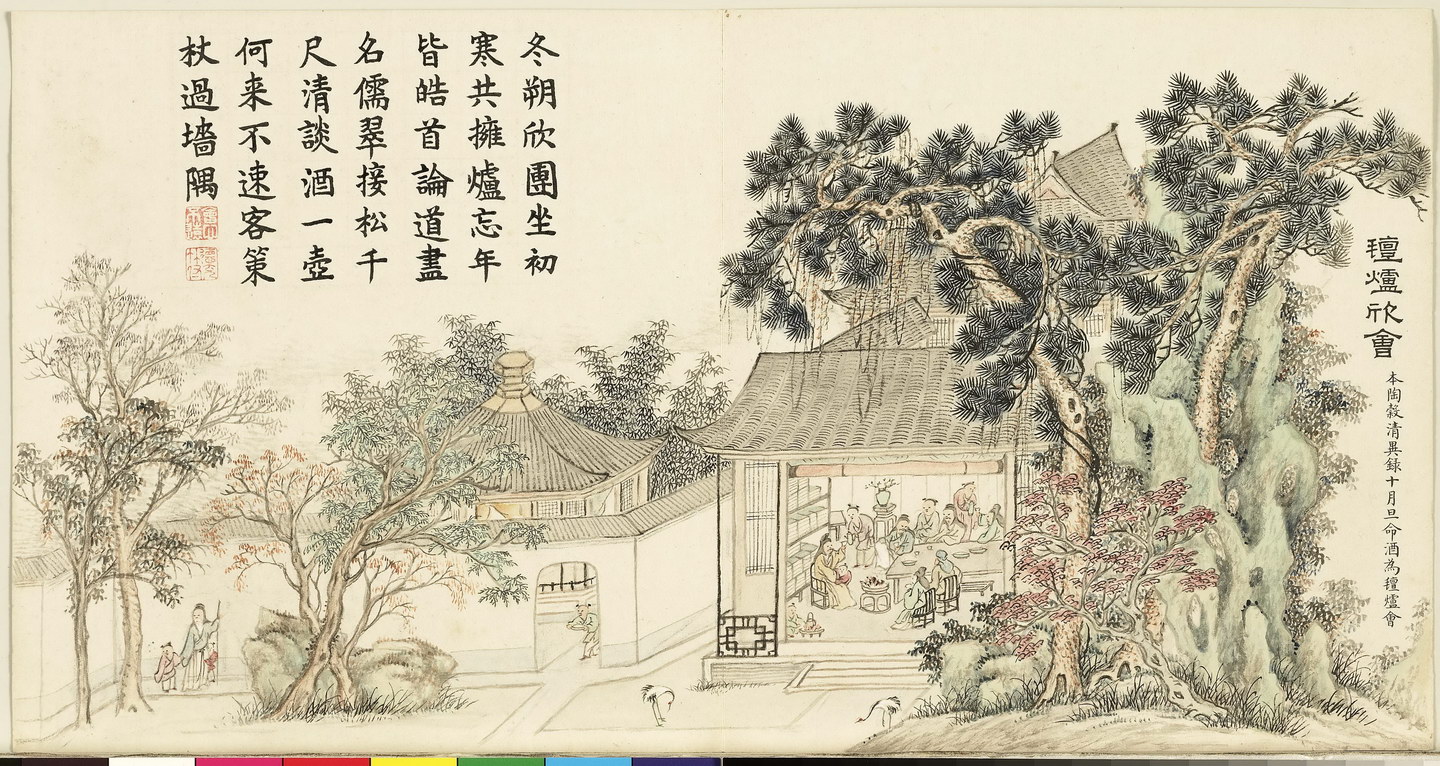 㼾爐欣會
本陶穀清異錄十月旦命酒為㼾爐會
冬朔欣團坐初
寒共擁爐忘年
皆皓首論道盡
名儒翠接松千
尺清談酒一壺
何来不速客策
杖過墻隅